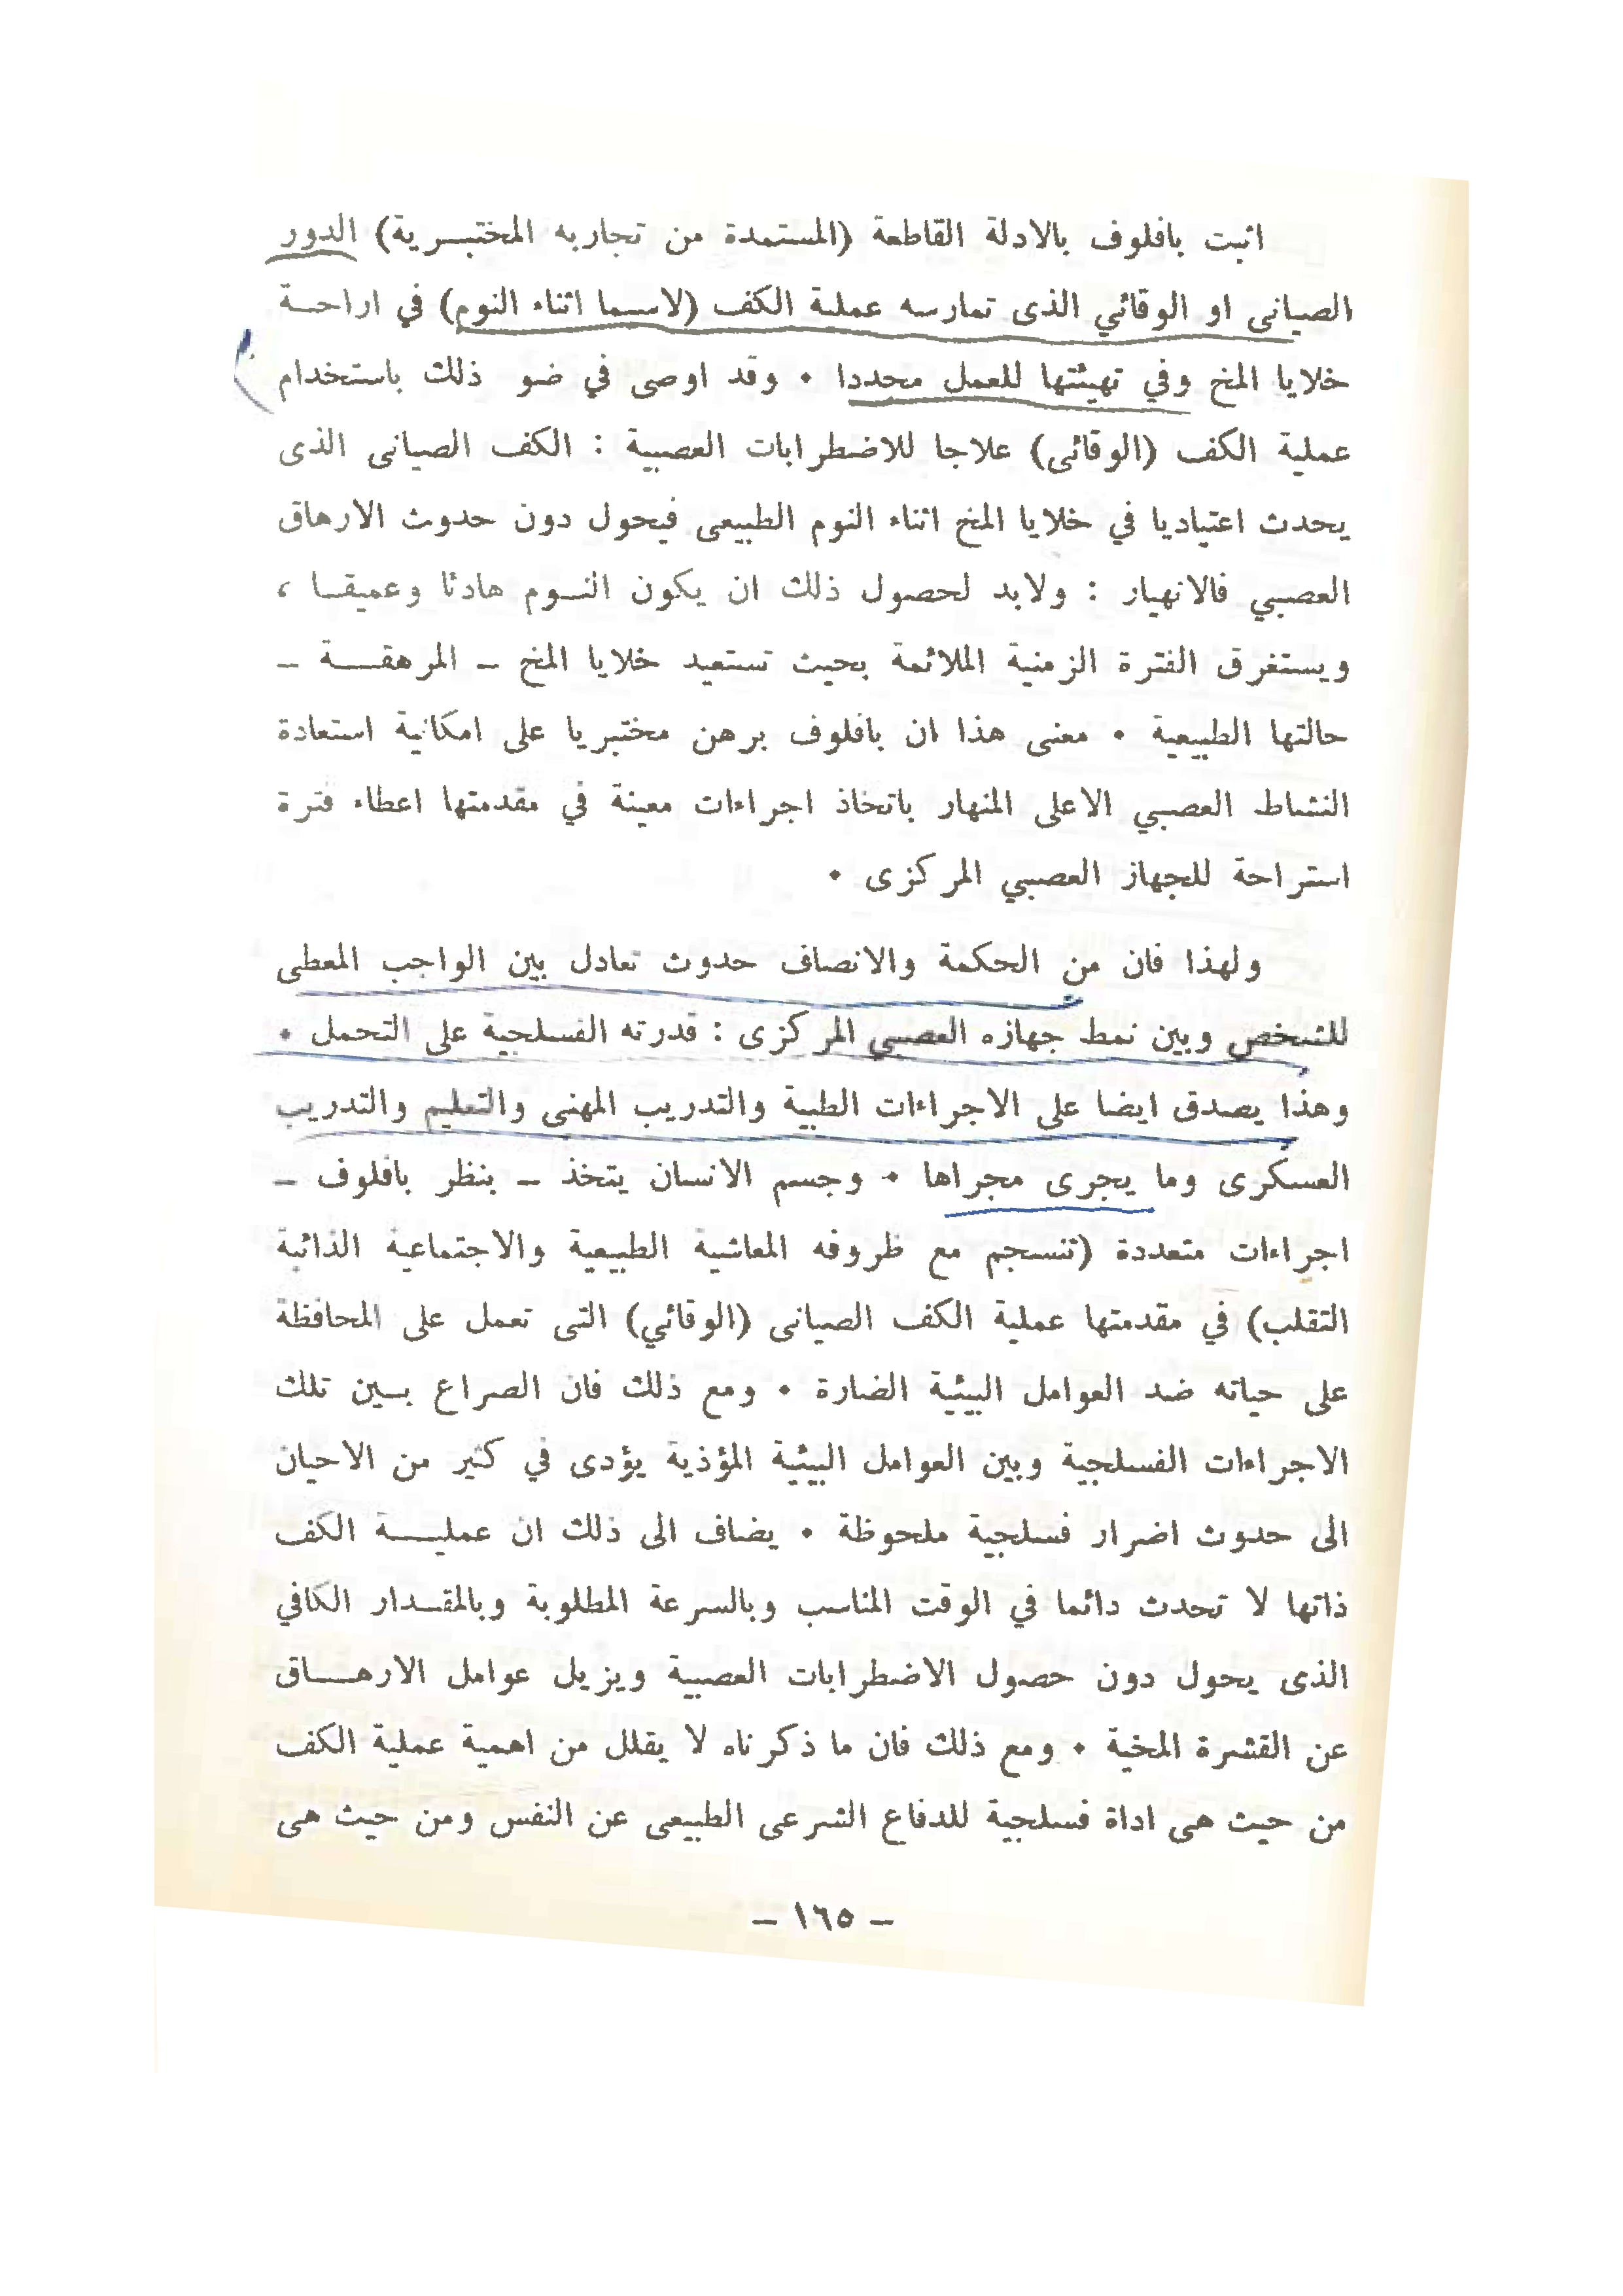 اثبت بافلوف بالادلة القاطعة (المستمدة من تجاربه المختبرية) الدور
الصيانى او الوقائي الذى تمارسه عملية الكف (لاسيما اثناء النوم) في اراحة
خلايا المخ وفي تهيئتها للعمل مجددا • وقد اوصى في ضو ذلك باستخدام
عملية الكف (الوقائى) علاجا للاضطرابات العصبية : الكف الصيانى الذى
يحدث اعتياديا في خلايا المخ اثناء النوم الطبيعى فيحول دون حدوث الارهاق
العصبي فالانهيار : ولابد لحصول ذلك ان يكون النوم هادئا وعميقا ،
ويستغرق الفترة الزمنية الملائمة بحيث تستعيد خلايا المخ – المرهقة –
حالتها الطبيعية • معنى هذا ان بافلوف برهن مختبريا على امكانية استعادة
النشاط العصبي الاعلى المنهار باتخاذ اجراءات معينة في مقدمتها اعطاء فترة
استراحة للجهاز العصبي المركزى •
ولهذا فان من الحكمة والانصاف حدوث تعادل بين الواجب المعطى
للشخص وبين نمط جهازه العصبي المركزى : قدرته الفسلجية على التحمل •
وهذا يصدق ايضا على الاجراءات الطبية والتدريب المهنى والتعليم والتدريب
العسكرى وما يجرى مجراها • وجسم الانسان يتخذ – بنظر بافلوف –
اجراءات متعددة (تنسجم مع ظروفه المعاشية الطبيعية والاجتماعية الدائبة
التقلب) في مقدمتها عملية الكف الصيانى (الوقائي) التى تعمل على المحافظة
على حياته ضد العوامل البيئية الضارة • ومع ذلك فان الصراع بين تلك
الاجراءات الفسلجية وبين العوامل البيئية المؤذية يؤدى في كثير من الاحيان
الى حدوث اضرار فسلجية ملحوظة • يضاف الى ذلك ان عملية الكف
ذاتها لا تحدث دائما في الوقت المناسب وبالسرعة المطلوبة وبالمقدار الكافي
الذى يحول دون حصول الاضطرابات العصبية ويزيل عوامل الارهاق
عن القشرة المخية • ومع ذلك فان ما ذكرناه لا يقلل من اهمية عملية الكف
من حيث هى اداة فسلجية للدفاع الشرعى الطبيعى عن النفس ومن حيث هى
– ١٦٥ –